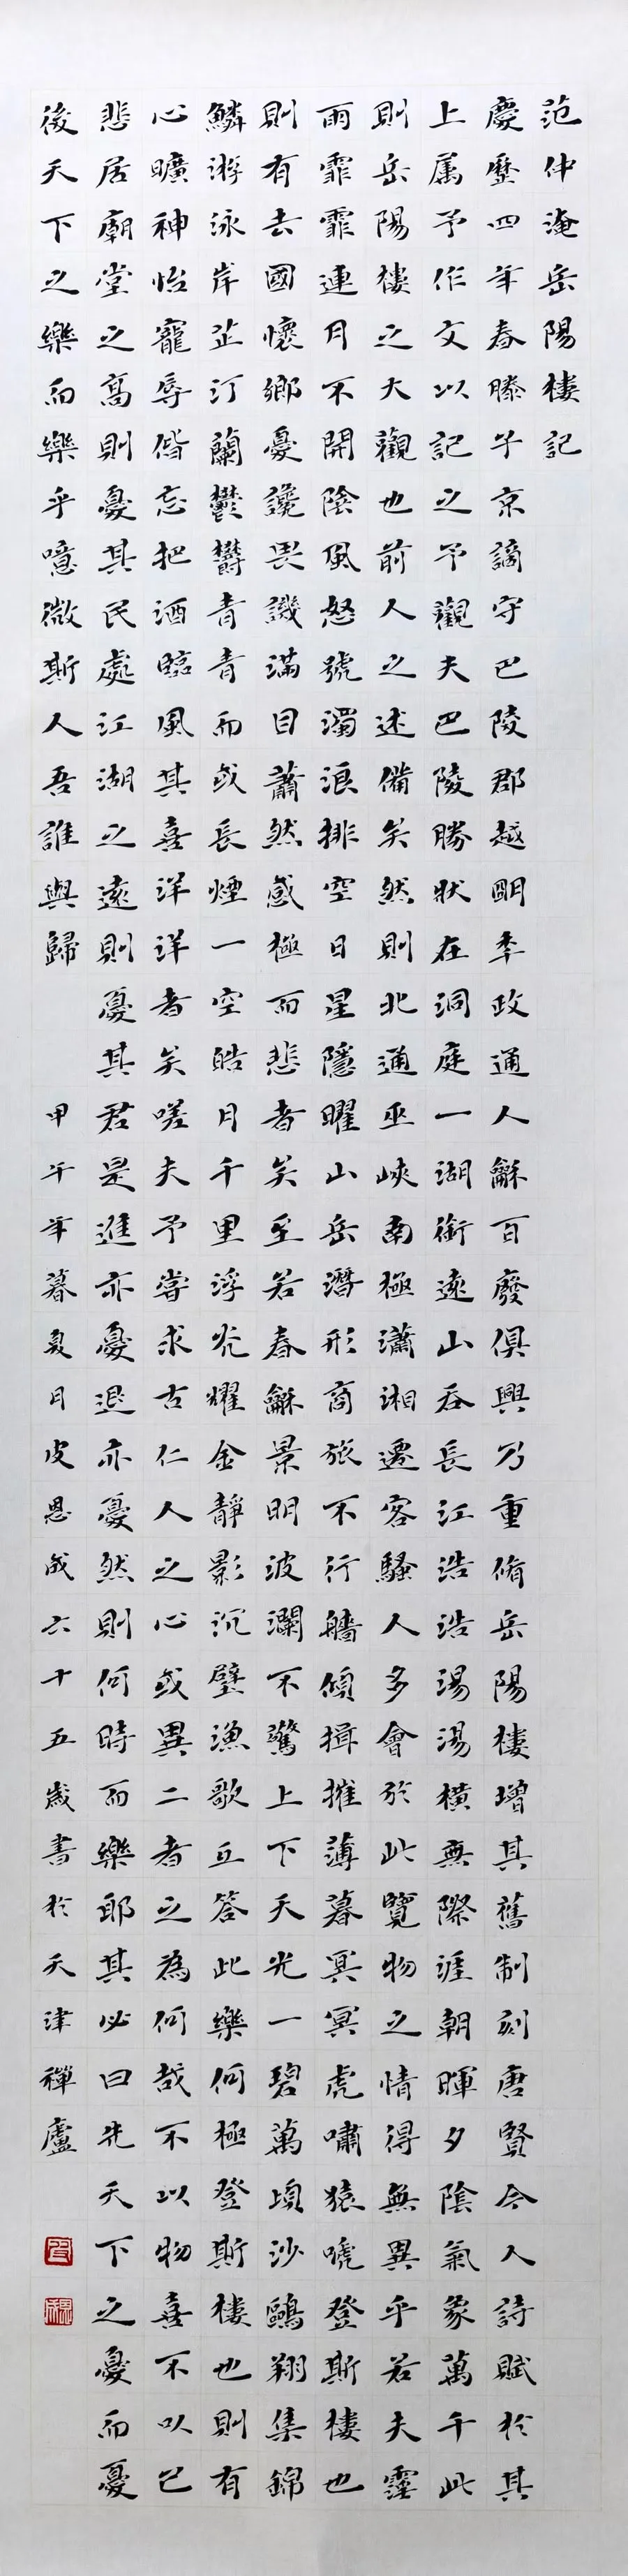 范仲淹岳陽樓記
慶歷四年春滕子京謫守巴陵郡越明年政通人龢百廢俱興乃重脩岳陽樓增其舊制刻唐賢今人詩賦於其
上属予作文以記之予觀夫巴陵勝狀在洞庭一湖銜遠山吞長江浩浩湯湯橫無際涯朝暉夕陰氣象萬千此
則岳陽樓之大觀也前人之述備矣然則北通巫峽南極瀟湘遷客騷人多會於此覽物之情得無異乎若夫霪
雨霏霏連月不開陰風怒號濁浪排空日星隱曜山岳潛形商旅不行艢傾楫摧薄暮冥冥虎嘯猿嗁登斯樓也
則有去國懷鄉憂讒畏譏滿目蕭然感極而悲者矣至若春龢景明波瀾不驚上下天光一碧萬頃沙鷗翔集錦
鱗游泳岸芷汀蘭鬱鬱青青而或長煙一空皓月千里浮光耀金靜影沉璧漁歌互答此樂何極登斯樓也則有
心曠神怡寵辱偕忘把酒臨風其喜洋洋者矣嗟夫予嘗求古仁人之心或異二者之為何哉不以物喜不以己
悲居廟堂之高則憂其民處江湖之遠則憂其君是進亦憂退亦憂然則何時而樂耶其必曰先天下之憂而憂
後天下之樂而樂乎噫微斯人吾誰與歸 甲午年暮夏月皮恩成六十五歲書於天津禪廬